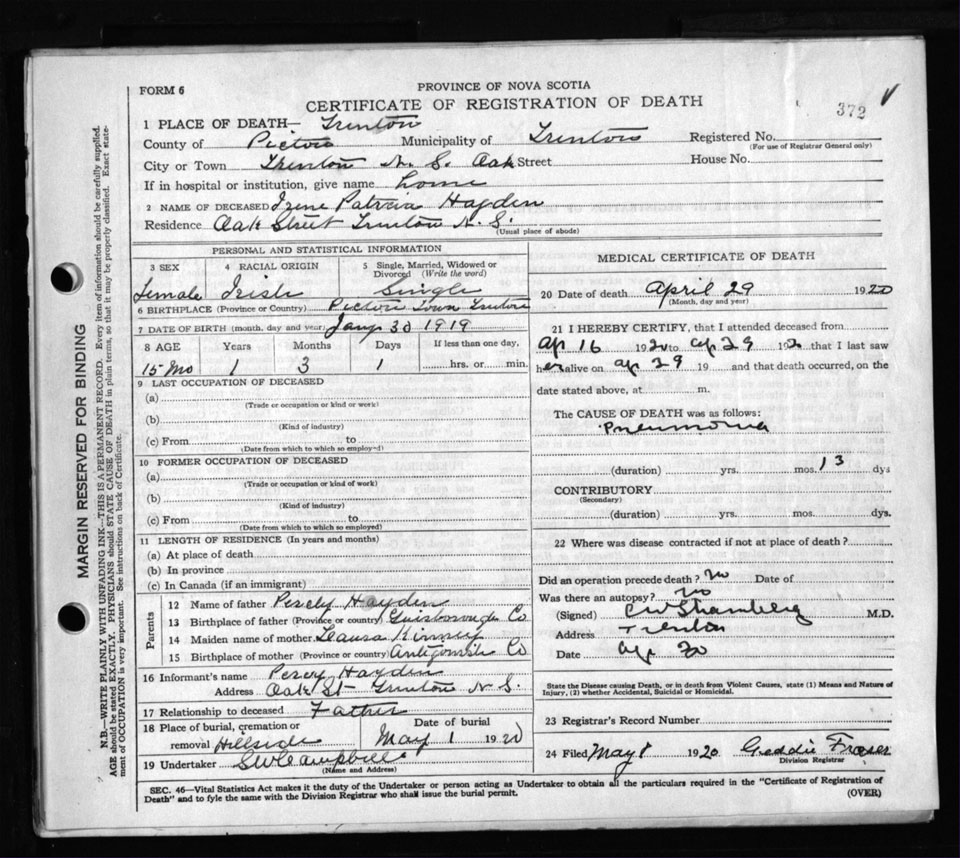 FORM 6
PROVINCE OF NOVA SCOTIA
CERTIFICATE OF REGISTRATION OF DEATH
372
1 PLACE OF DEATH— Trenton
County of Pictou Municipality of Trenton Registered No.
(For use of Registrar General only)
City or Town Trenton N. S. Oak Street House No.
If in hospital or institution, give name home
2 NAME OF DECEASED Irene Patricia Hayden
Residence Oak Street Trenton N. S.
(Usual place of abode)
PERSONAL AND STATISTICAL INFORMATION
3 SEX 4 RACIAL ORIGIN 5 Single, Married, Widowed or Divorced (Write the word)
Female Irish Single
6 BIRTHPLACE (Province or Country) Pictou Town Trenton
7 DATE OF BIRTH (month, day and year) Jany 30 1919
8 AGE Years Months Days If less than one day,
15 Mo 1 3 1 hrs. or min.
9 LAST OCCUPATION OF DECEASED
(a)
(Trade or occupation or kind or work)
(b)
(Kind of industry)
(c) From to
(Date from which to which so employed)
10 FORMER OCCUPATION OF DECEASED
(a)
(Trade or occupation or kind of work)
(b)
(Kind of industry)
(c) From to
(Date from which to which so employed)
11 LENGTH OF RESIDENCE (In years and months)
(a) At place of death
(b) In province
(c) In Canada (if an immigrant)
Parents
12 Name of father Percy Hayden
13 Birthplace of father (Province or country) Guysborough Co
14 Maiden name of mother Laura Kinney
15 Birthplace of mother (Province or country) Antigonish Co
16 Informant's name Percy Hayden
Address Oak St Trenton N S.
17 Relationship to deceased Father
18 Place of burial, cremation or Date of burial
removal Hillside May 1 1920
19 Undertaker S W Campbell
(Name and Address)
MEDICAL CERTIFICATE OF DEATH
20 Date of death April 29 1920
(Month, day and year)
21 I HEREBY CERTIFY, that I attended deceased from
Ap 16 1920 to Ap 29 192 that I last saw
her alive on Ap 29 19 and that death occurred, on the
date stated above, at m.
The CAUSE OF DEATH was as follows:
Pneumonia
(duration) yrs. mos. 13 dys
CONTRIBUTORY
(Secondary)
(duration) yrs. mos. dys.
22 Where was disease contracted if not at place of death?
Did an operation precede death? no Date of
Was there an autopsy? no
(Signed) M.D.
Address Trenton
Date Ap 30
State the Disease causing Death, or in death from Violent Causes, state (1) Means and Nature of
Injury, (2) whether Accidental, Suicidal or Homicidal.
23 Registrar's Record Number
24 Filed May 8 1920 Geddie Fraser
Division Registrar
SEC. 46—Vital Statistics Act makes it the duty of the Undertaker or person acting as Undertaker to obtain all the particulars required in the "Certificate of Registration of
Death" and to fyle the same with the Division Registrar who shall issue the burial permit.
(OVER)
MARGIN RESERVED FOR BINDING
N.B.—WRITE PLAINLY WITH UNFADING INK—THIS IS A PERMANENT RECORD. Every item of information should be carefully supplied.
AGE should be stated EXACTLY. PHYSICIANS should STATE CAUSE OF DEATH in plain terms, so that it may be properly classified. Exact state-
ment of OCCUPATION is very important. See instructions on back of Certificate.